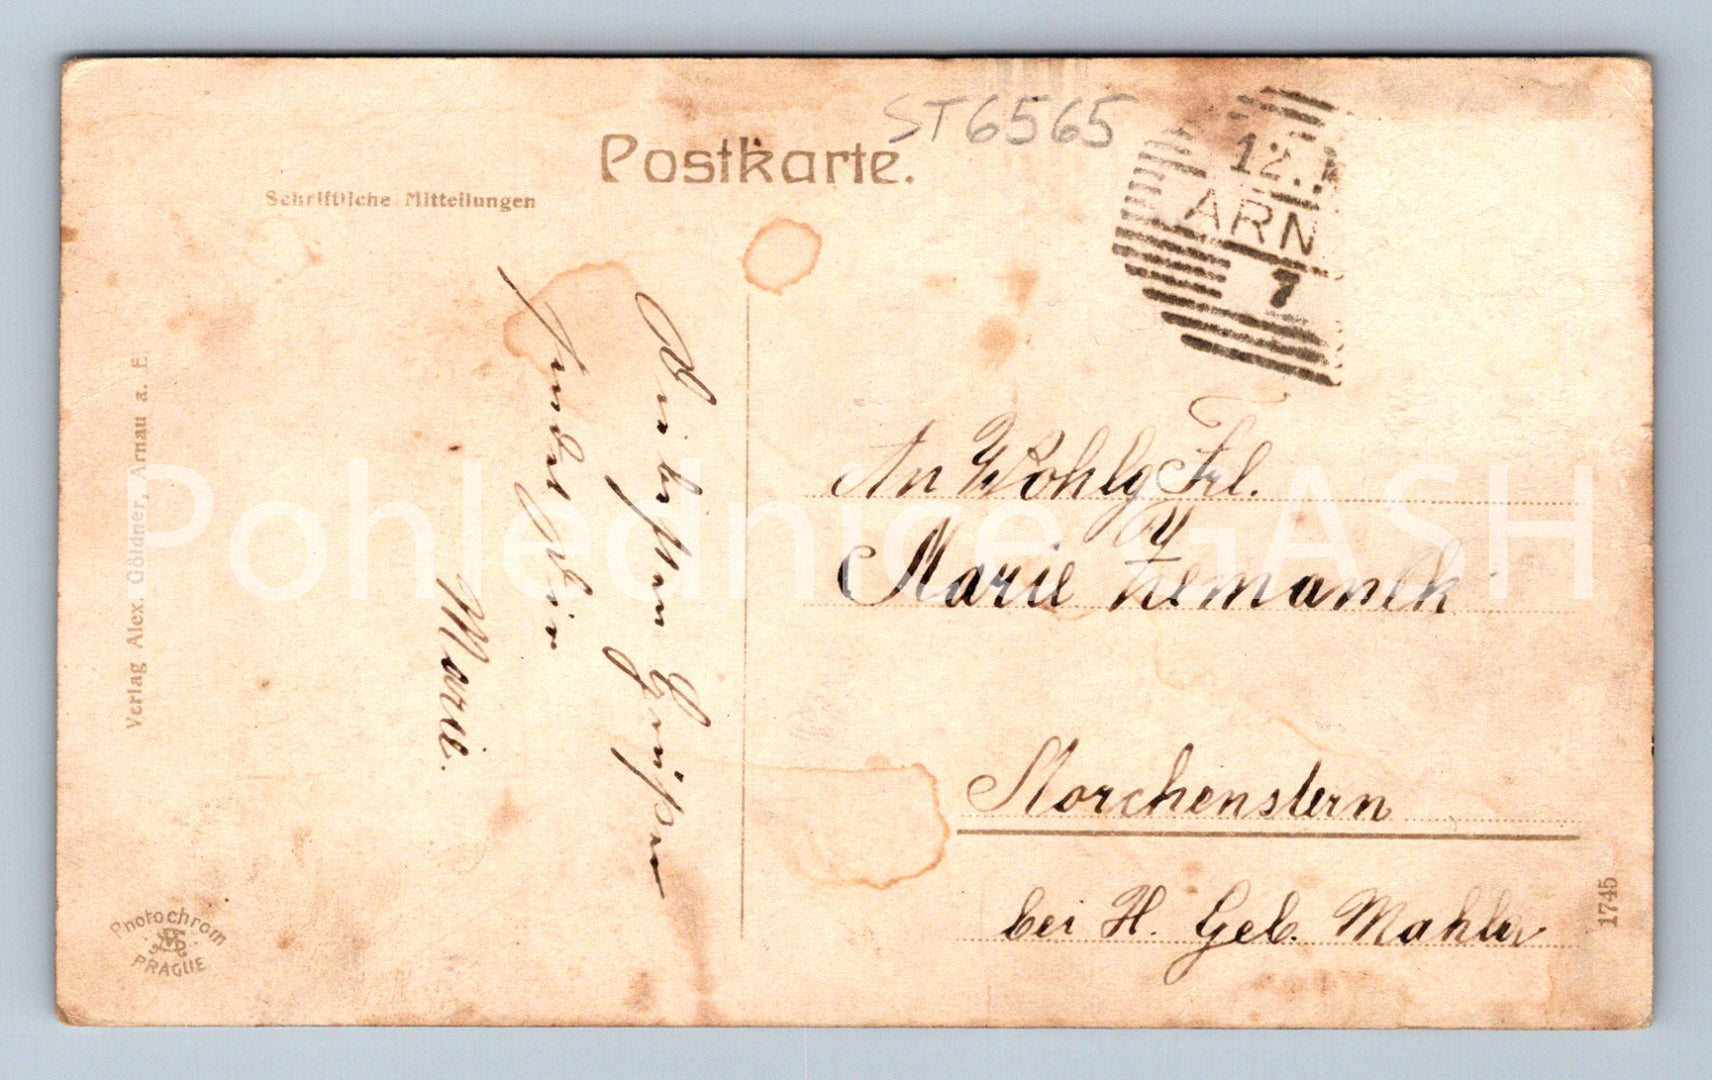 ST6565
Postkarte.
Schriftliche Mitteilungen
12.
ARN
7
Die besten Grüßen
sendet Dir
Marie.
An Wohlg Frl.
Marie Zemanek
Morchenstern
bei H. Geb. Mahla
Verlag Alex. Göldner, Arnau a. E.
Photochrom
PRAGUE
1745
Pohlednice GASH